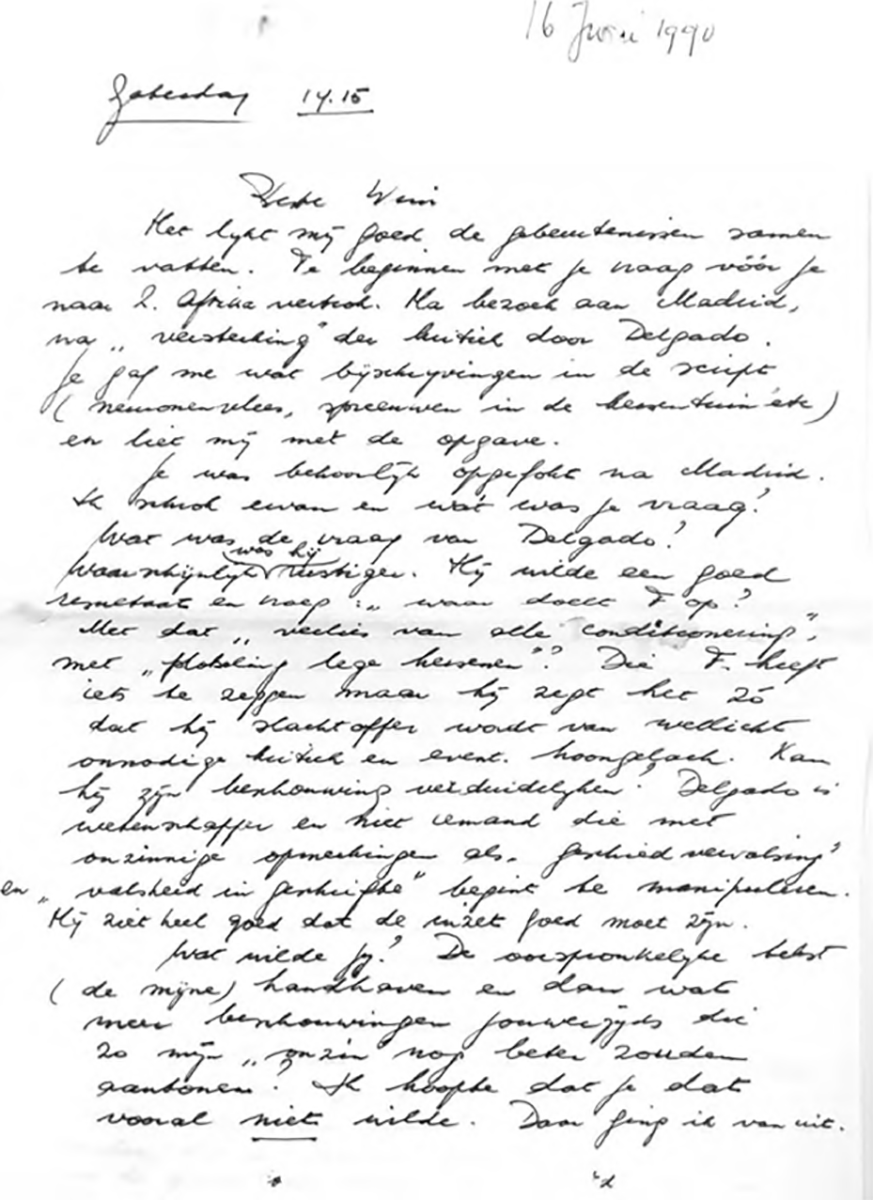 16 Juni 1990
Zaterdag 14.15
Beste Wim
Het lijkt mij goed de gebeurtenissen samen
te vatten. Te beginnen met je vraag vóór je
naar Z. Afrika vertrok. Na bezoek aan Madrid,
na „versterking" der kritiek door Delgado.
Je gaf me wat bijschrijvingen in de script
(neuronenvlees, spreeuwen in de kersentuin etc)
en liet mij met de opgave.
Je was behoorlijk opgefokt na Madrid.
Ik schrok ervan en wát was je vraag?
Wat was de vraag van Delgado?
was hij
Waarschijnlijk rustiger. Hij wilde een goed
resultaat en vroeg: „waar doelt F op?
Met dat „verlies van alle conditionering",
met „plotseling lege hersenen"? Die F. heeft
iets te zeggen maar hij zegt het zó
dat hij slachtoffer wordt van wellicht
onnodige kritiek en event. hoongelach. Kan
hij zijn beschouwing verduidelijken? Delgado is
wetenschapper en niet iemand die met
onzinnige opmerkingen als „geschiedvervalsing"
en „valsheid in geschrifte" begint te manipuleren.
Hij ziet heel goed dat de inzet goed moet zijn.
Wat wilde jij? De oorspronkelijke tekst
(de mijne) handhaven en dan wat
meer beschouwingen jouwerzijds die
zo mijn „onzin nog beter zouden
aantonen"? Ik hoopte dat je dat
vooral niet wilde. Daar ging ik van uit.